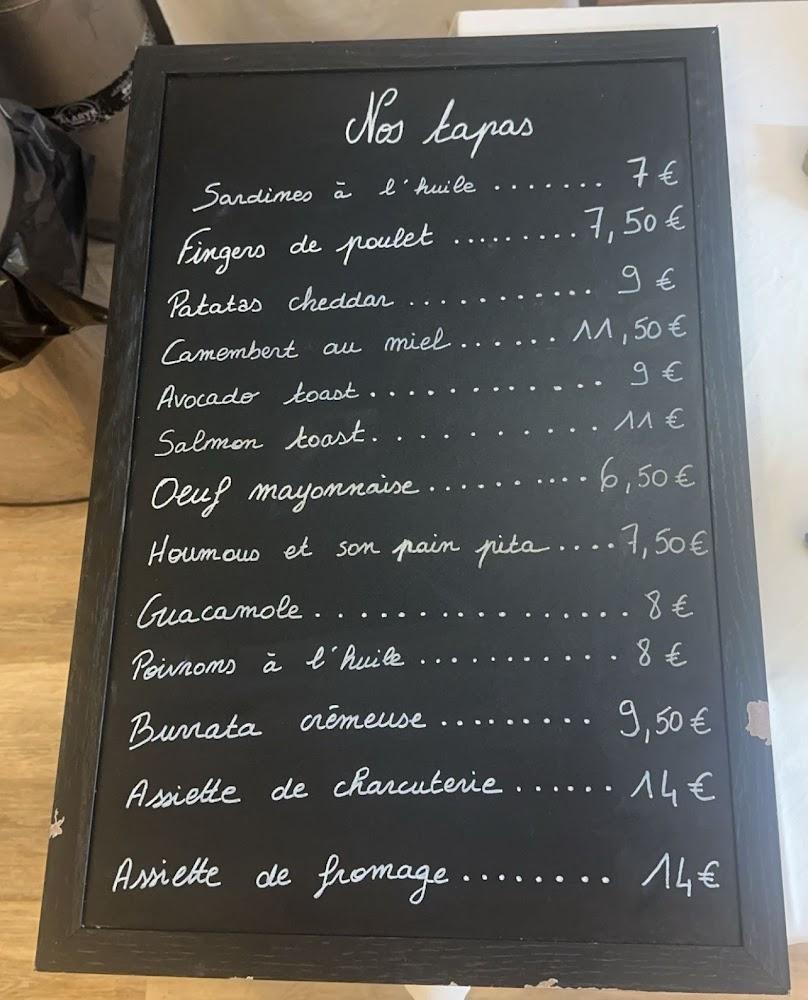 Nos tapas
Sardines à l'huile ....... 7 €
Fingers de poulet ......... 7,50 €
Patatas cheddar ............ 9 €
Camembert au miel ...... 11,50 €
Avocado toast ............ 9 €
Salmon toast ............ 11 €
Oeuf mayonnaise .......... 6,50 €
Houmous et son pain pita .... 7,50 €
Guacamole ................ 8 €
Poivrons à l'huile ........... 8 €
Burrata crémeuse ......... 9,50 €
Assiette de charcuterie ...... 14 €
Assiette de fromage ........ 14 €